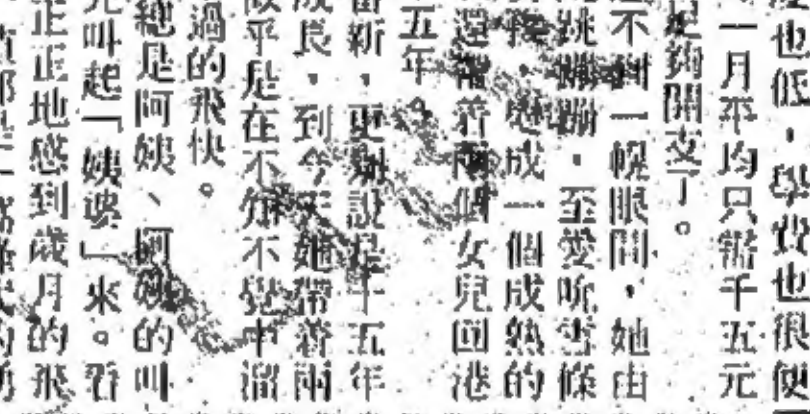 也低，學費也很便
一月平均只需千五元
足夠開支了。
不到一幌眼間，她由
跳蹦蹦，至愛吮雪條
變成一個成熟的
還帶着兩個女兒回港
五年。
新，更別說是十五年
成長，到今天她帶着兩
乎是在不知不覺中溜
過的飛快。
總是阿姨、阿姨的叫
叫起「姨婆」來。看
正正地感到歲月的飛